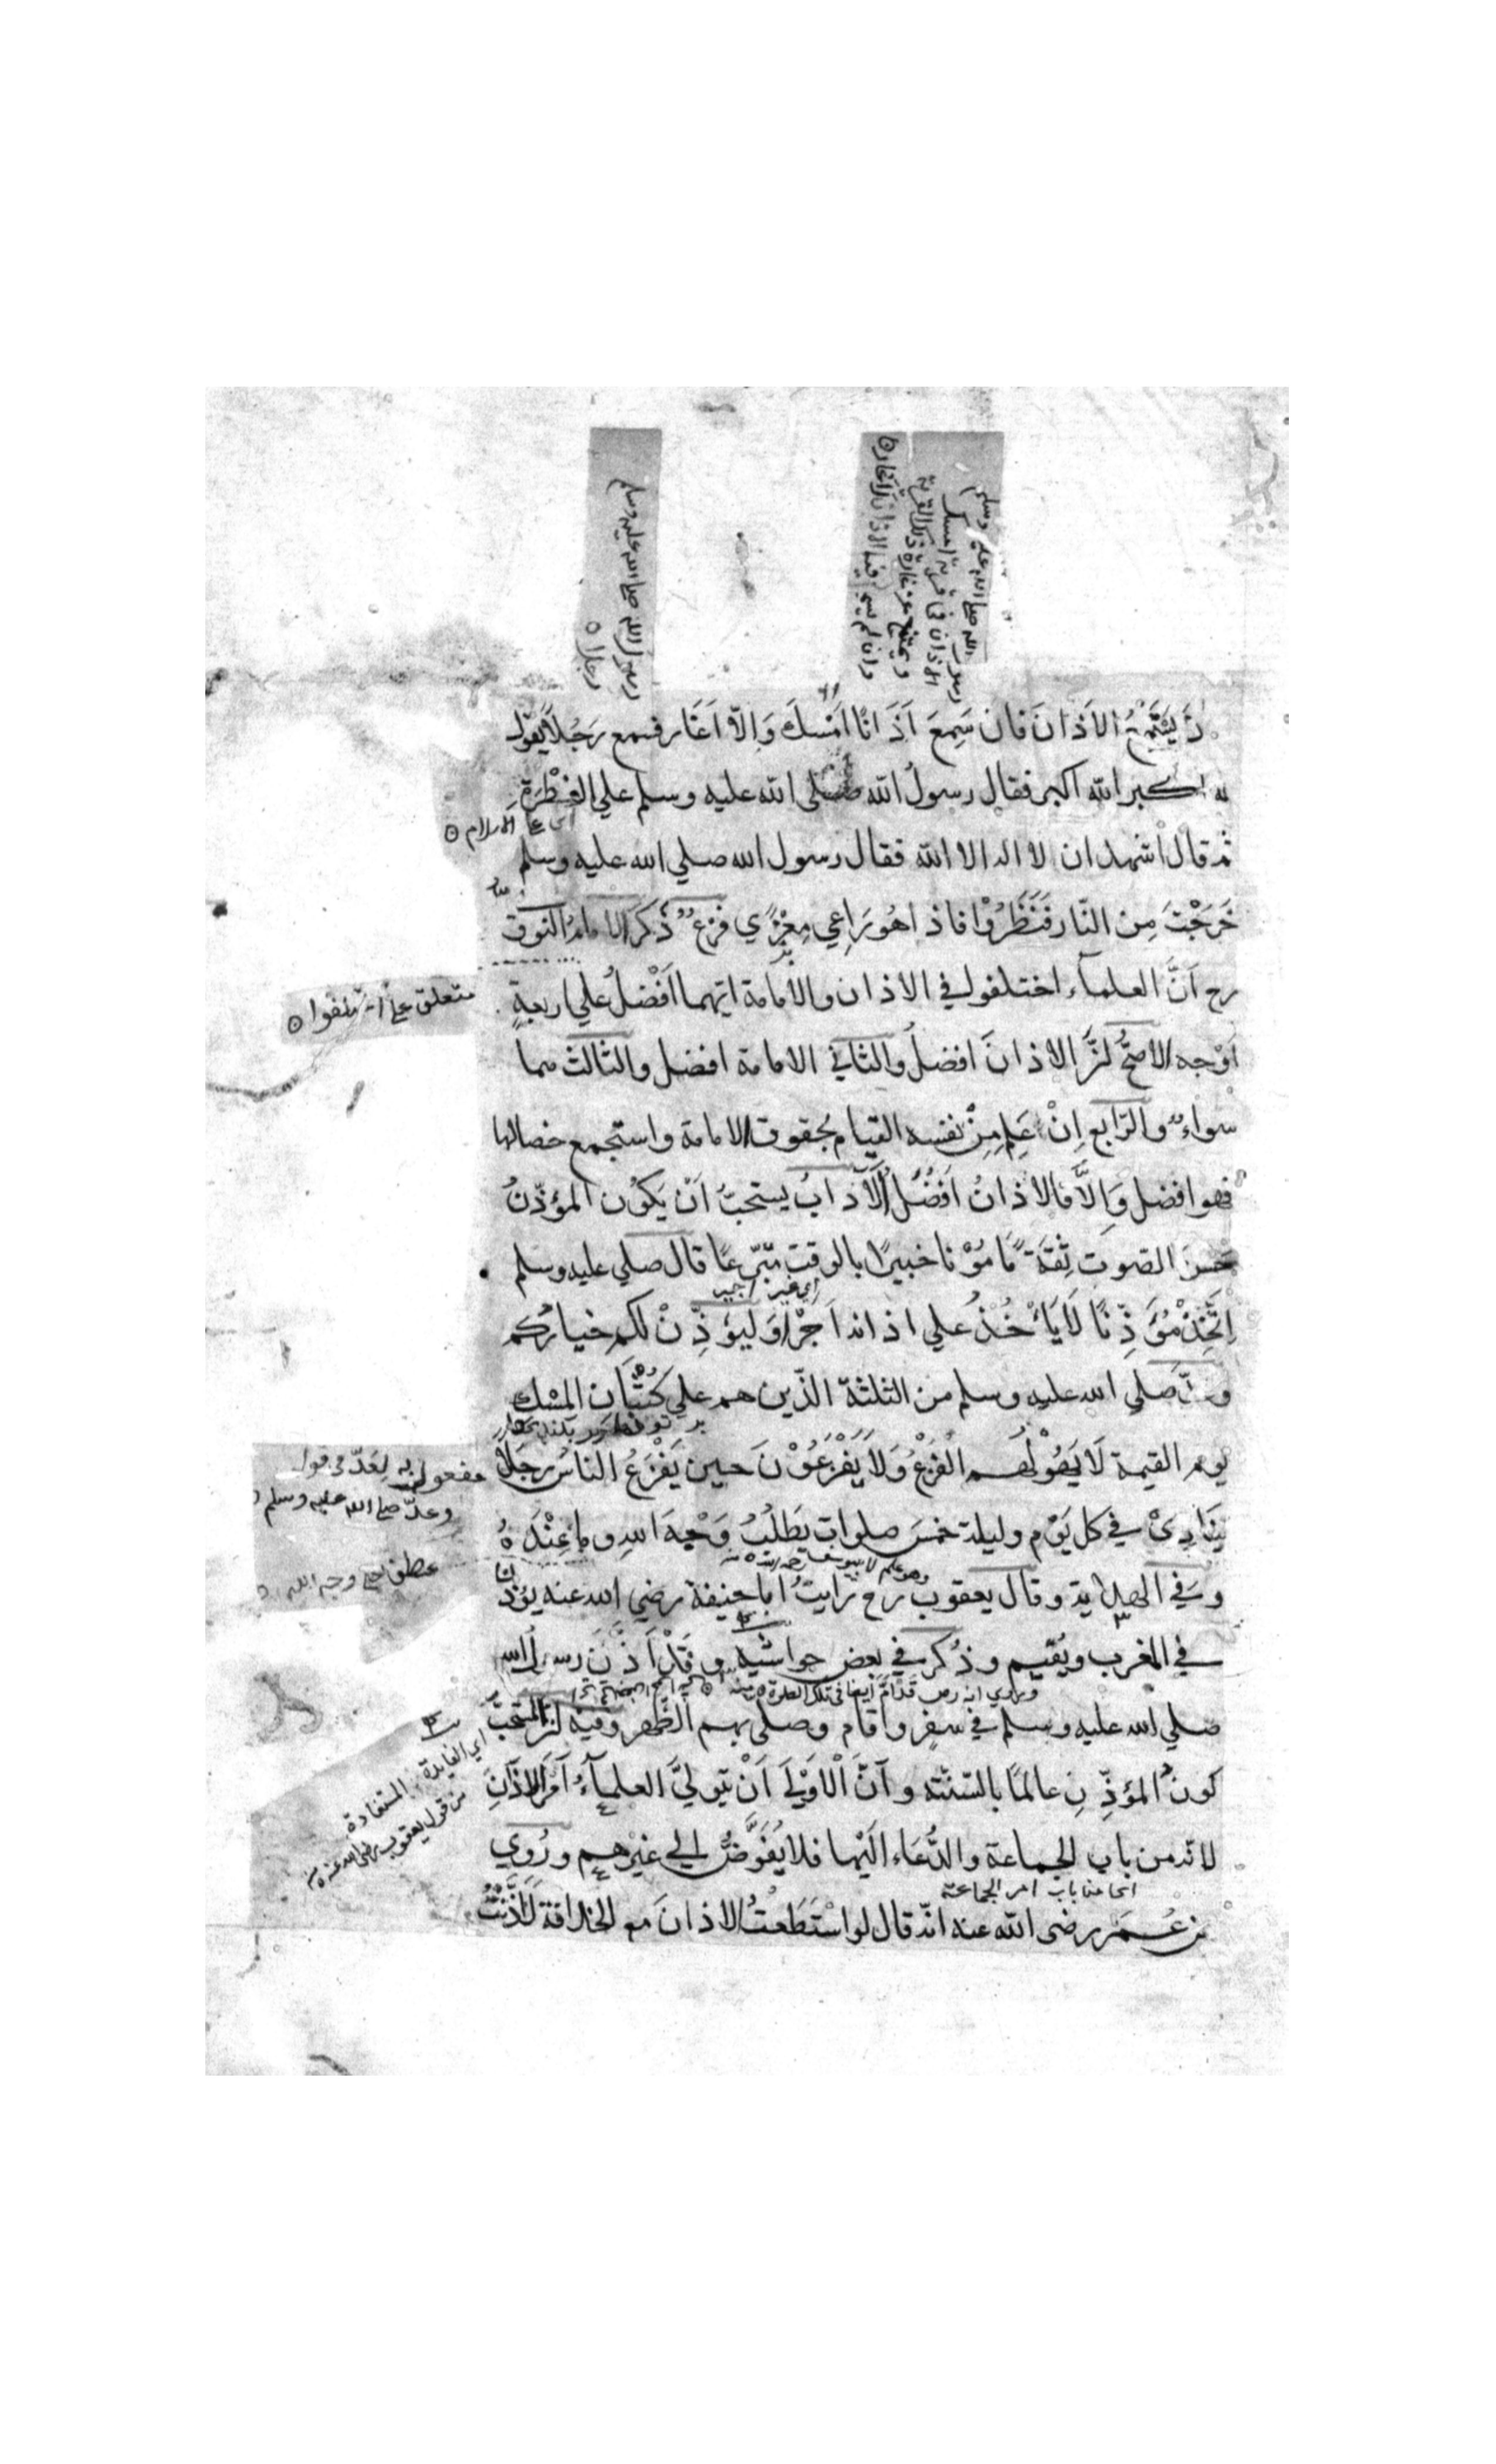 يَسْتَمِعُ الاَذانَ فان سَمِعَ اَذَانًا اَمْسَكَ وَالاّ اَغَار فسمع رَجُلاً يَقول
اكبر الله اكبر فقال رسول الله صلى الله عليه وسلم علي الفِطْرَةِ
اى على الاسلام
ثم قال اشهد ان لا اله الا الله فقال رسول الله صلي الله عليه وسلم
خَرَجْتَ مِن النّار فَنَظَرُوْا فاذا هُو رَاعِي مِعْزًي فرع ذكر الامام النووي
رح اَنَّ العلماء اختلفوا في الاذان والامامة ايهما اَفْضلُ علي اربعةِ
اوْجه الاصحُّ انَّ الاذانَ افضلُ والثاني الامامة افضل والثالث هما
سواءٌ والرّابع اِنْ عَلِمَ مِنْ نفسه القيام بحقوق الامامة واستجمع خصالها
فهو افضل وَاِلاَّ فالاذانُ اَفضُلُ الآدابُ يستحبُّ اَنْ يَكوُن المؤذّنُ
حَسَنَ الصّوت ثِقَةً مَامُوْنا خبيرًا بالوقت متبرّعًا قال صلي عليه وسلم
اِتَّخِذْ مُؤَذِّنًا لَا يَأْخُذُ علي اذانه اَجْرًا وَليؤَذِّنْ لكم خياركم
وعدّ صَلي الله عليه وسلم من الثلثة الذّين هم علي كُثْبَان المِسْك
يوم القيمة لَا يَهُوْلُهم الفَزَعُ وَلَا يَفْزَعُوْنَ حين يَفْزَعُ الناسُ رجلاً
يُنَادِيْ في كل يَوْم وليلة خمسَ صلوات يَطلُبُ وَجْهَ اللهِ وما عِنْدَهُ
وفي الهداية وقال يعقوب رح رايتُ ابا حنيفة رضي الله عنه يؤذن
في المغرب ويُقيم وذُكر في بعض حواشيه وقَدْ اَذَّنَ رسول الله
صلي الله عليه وسلم في سفرٍ واقام وصلى بهم الظّهر وفيه انّ المستحبَّ
كونُ المؤذِّنِ عالمًا بالسّنّة وآنّ الْاَوْلَي اَنْ يتولّيَ العلمآءُ اَمْرَ الاذانِ
لانّه من باب الجماعة والدُّعَاء اِلَيْها فلا يُفَوَّضُ الي غيْرهم ورُوي
اى من باب امر الجماعة
عن عُمَر رضي الله عنه انّه قال لو اسْتَطَعْتُ الاذانَ مع الخلافة لَاَذَّنْتُ
رسول الله صلى الله عليه وسلم
رجلا
متعلق
مفعول به لعَدّ في قوله
وعدّ صلى الله عليه وسلم
عطف على وجه الله
اي الفايدة المستفادة
من قول يعقوب رضى الله عنه